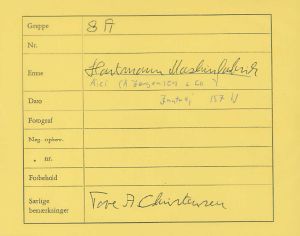 Gruppe 8 A
Nr.
Emne Hartmann Maskinfabrik
A/S (A Jørgensen & Co)
Dato
Fotograf
Neg. opbev.
" nr.
Forbehold
Særlige bemærkninger Tove A Christensen